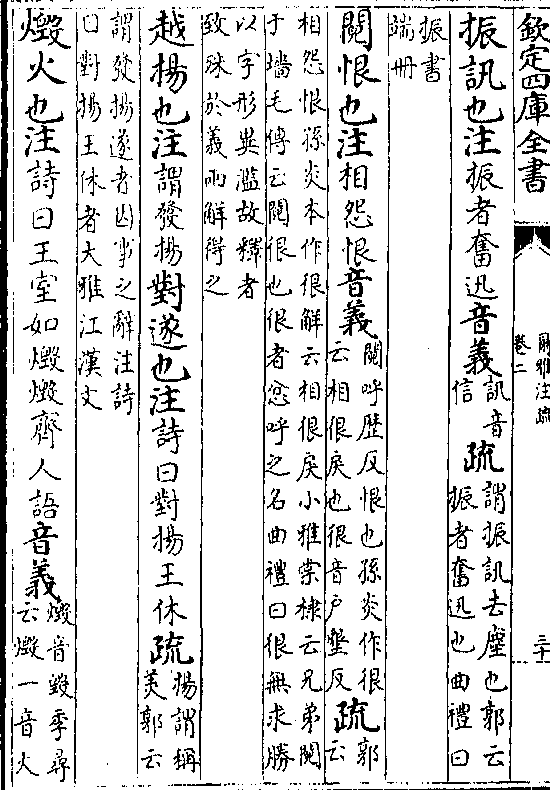 欽定四庫全書
爾雅注疏
卷二
三十
振訊也注振者奮迅音義訊音信疏謂振訊去塵也郭云振者奮迅也曲禮曰
振書端冊
鬩恨也注相怨恨音義鬩呼歷反恨也孫炎作很云相很戾也很音戶墾反疏郭云
相怨恨孫炎本作很解云相很戾小雅棠棣云兄弟鬩于墻毛傳云鬩很也很者忿呼之名曲禮曰很無求勝
以字形異濫故釋者致殊於義兩解得之
越揚也注謂發揚對遂也注詩曰對揚王休疏揚謂稱美郭云
謂發揚遂者因事之辭注詩曰對揚王休者大雅江漢文
燬火也注詩曰王室如燬燬齊人語音義燬音毀李尋云燬一音火